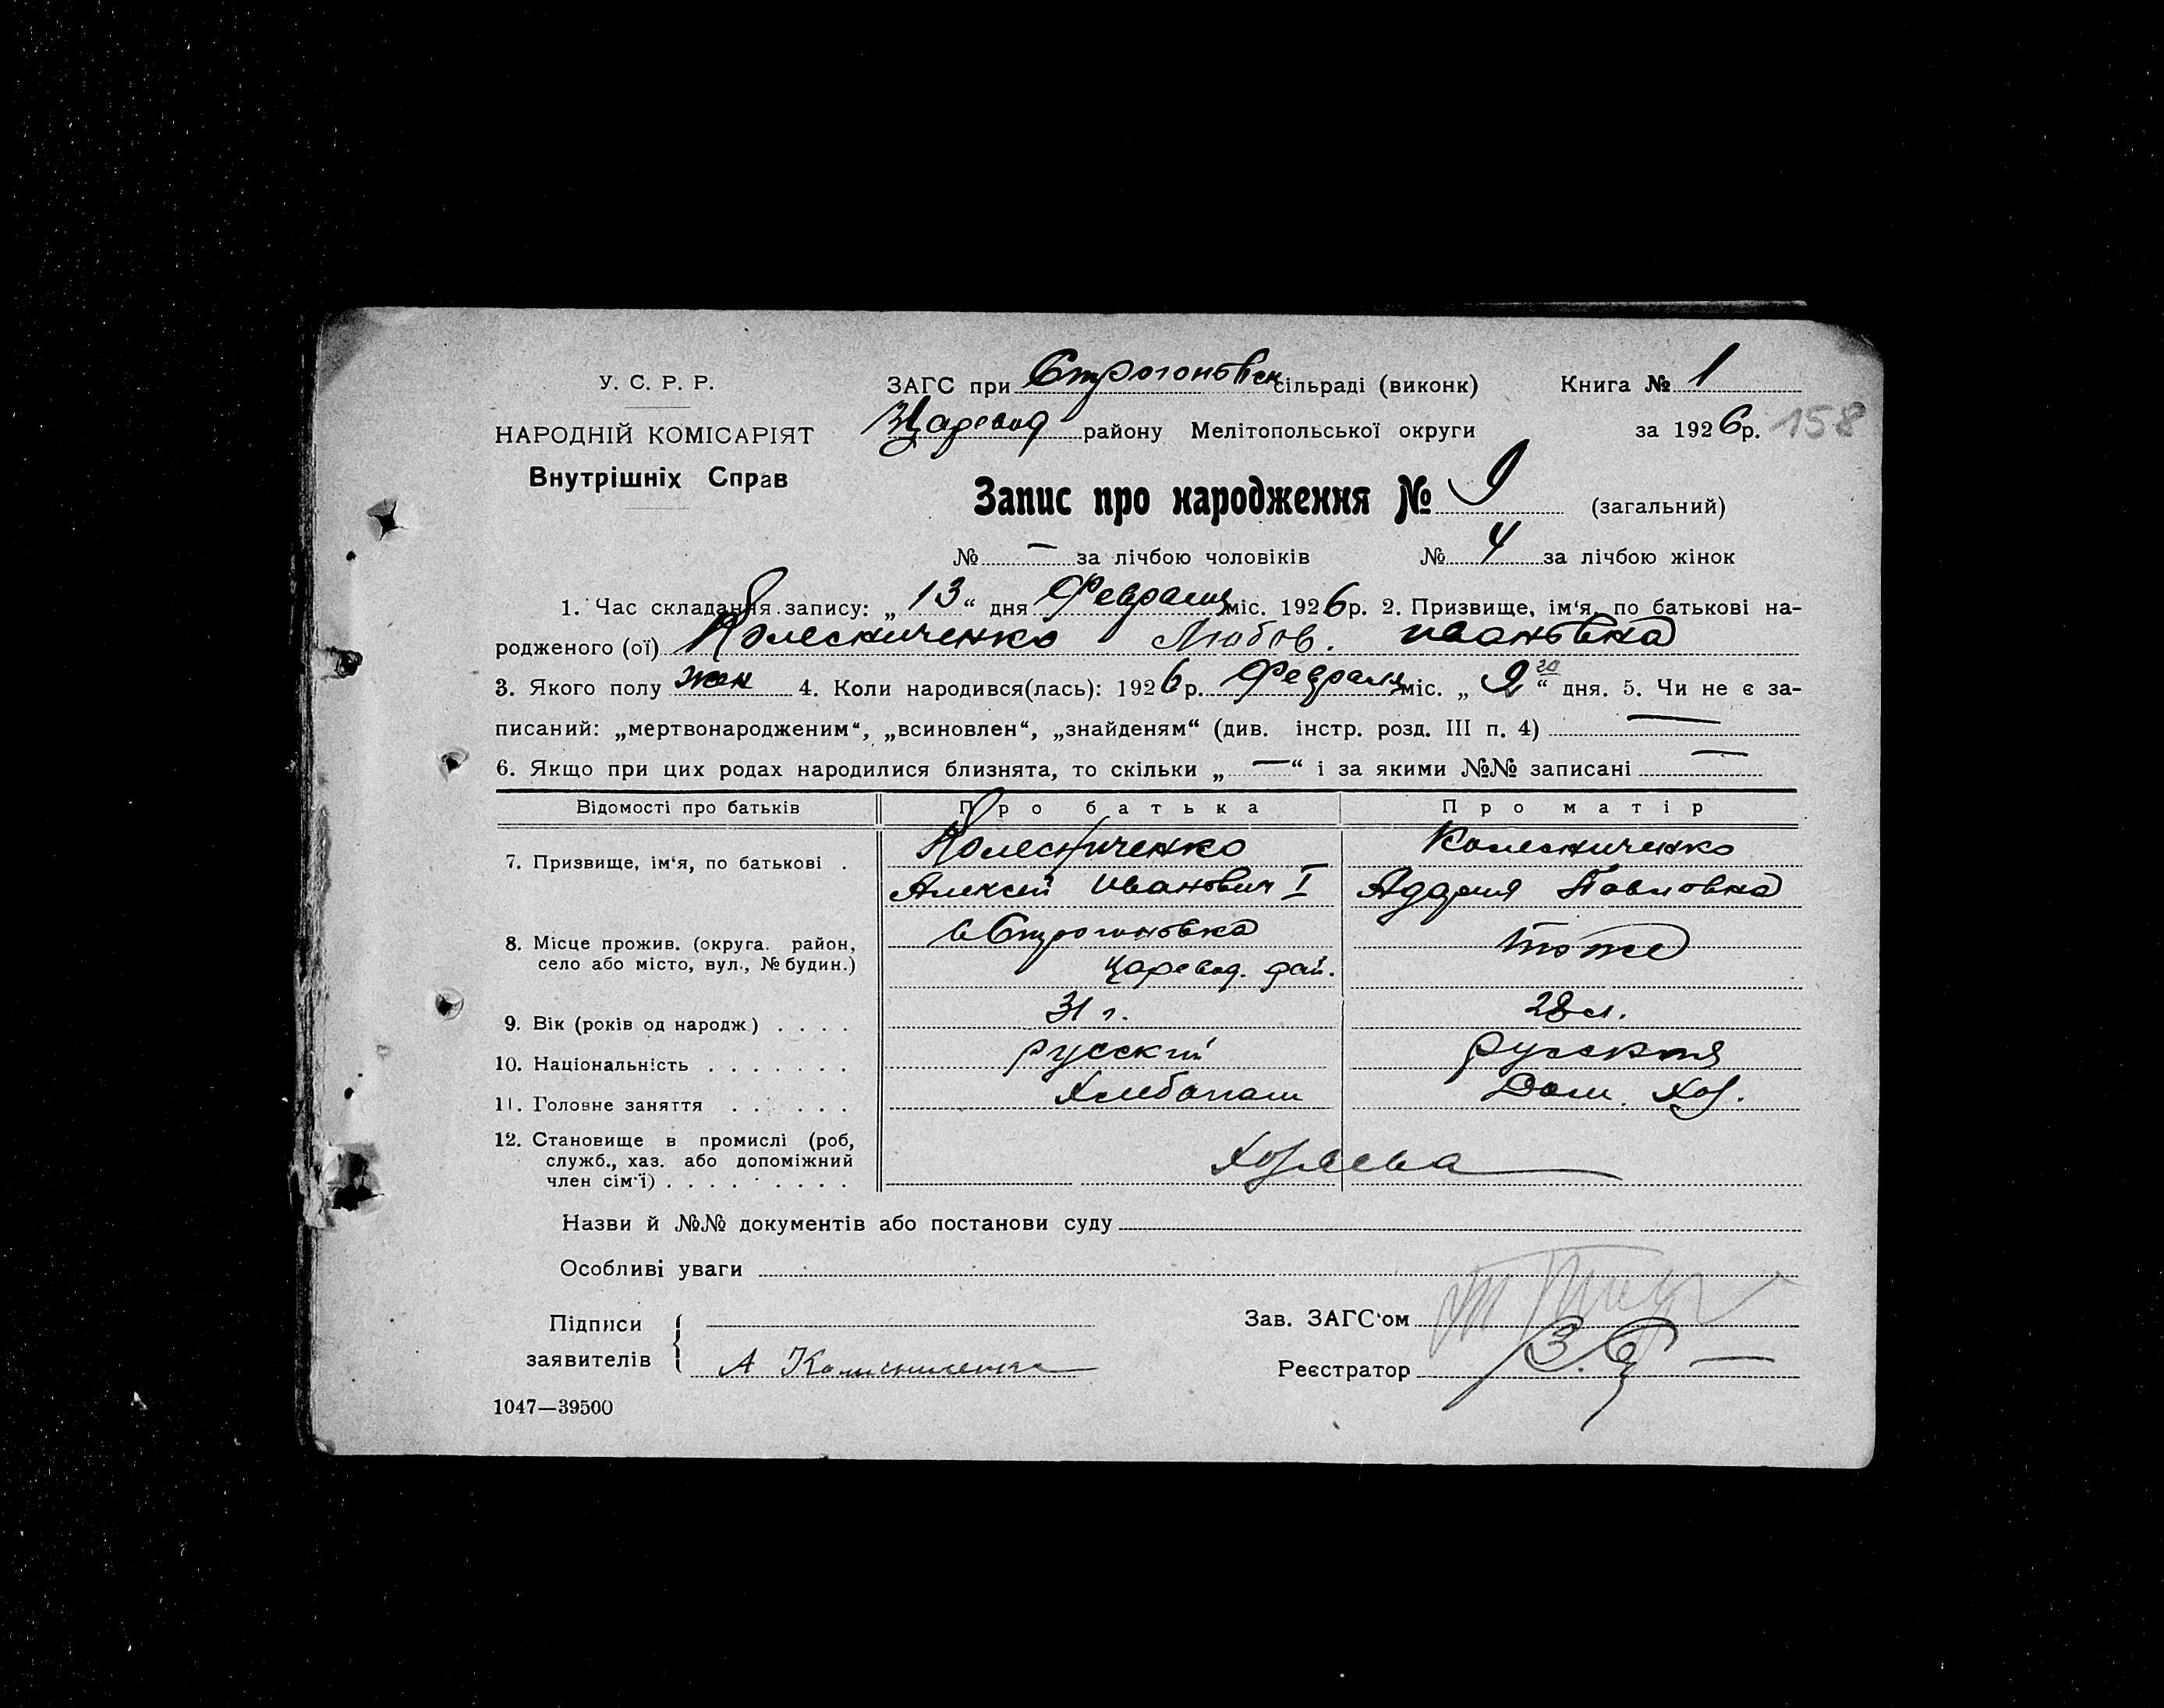 У. С. Р. Р.
НАРОДНІЙ КОМІСАРІЯТ
Внутрішніх Справ
ЗАГС при Строгоновск сільраді (виконк)
Царевод району Мелітопольської округи
Книга № 1
за 1926 р. 158
Запис про народження № 9 (загальний)
№ — за лічбою чоловіків № 4 за лічбою жінок
1. Час складання запису: „ 13 “ дня Февраля міс. 1926 р. 2. Призвище, ім‘я, по батькові на-
родженого (ої) Колесниченко Любов. ивановна
3. Якого полу жен 4. Коли народився(лась): 1926 р. Февраля міс. „ 2го “ дня. 5. Чи не є за-
писаний: „мертвонародженим“, „всиновлен“, „знайденям“ (див. інстр. розд. III п. 4) —
6. Якщо при цих родах народилися близнята, то скільки „ — “ і за якими №№ записані —
Відомості про батьків Про батька Про матір
7. Призвище, ім‘я, по батькові . Колесниченко Колесниченко
Алексей Иванович I Павловна
8. Місце прожив. (округа. район, село або місто, вул., № будин.) Строгоновка тоже
Царевод. рай.
9. Вік (років од народж) . . . . 31 г. 28 л.
10. Національність . . . . . . . русский русская
11. Головне заняття . . . . . . Хлебопаш Дом. Хоз.
12. Становище в промислі (роб, служб., хаз. або допоміжний член сім‘ї) . . . . . . . . . Хозяева
Назви й №№ документів або постанови суду
Особливі уваги
Підписи заявителів А Колесниченко
Зав. ЗАГС‘ом
Реєстратор
1047—39500